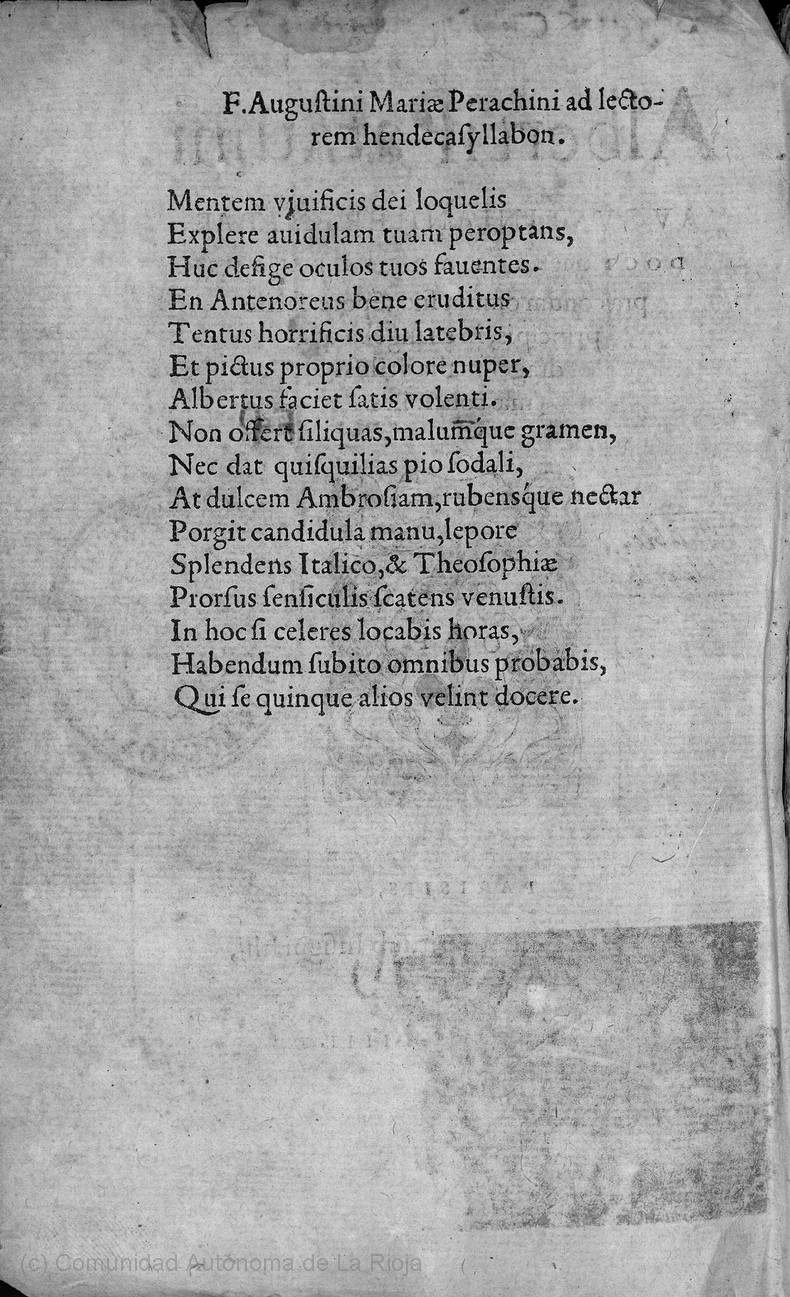 F. Auguſtini Mariæ Perachini ad lecto-
rem hendecaſyllabon.
Mentem viuificis dei loquelis
Explere auidulam tuam peroptans,
Huc defige oculos tuos fauentes.
En Antenoreus bene eruditus
Tentus horrificis diu latebris,
Et pictus proprio colore nuper,
Albertus faciet ſatis volenti.
Non offert ſiliquas, malum̃que gramen,
Nec dat quiſquilias pio ſodali,
At dulcem Ambroſiam, rubensq́ue nectar
Porgit candidula manu, lepore
Splendens Italico, & Theoſophiæ
Prorſus ſenſiculis ſcatens venuſtis.
In hoc ſi celeres locabis horas,
Habendum ſubito omnibus probabis,
Qui ſe quinque alios velint docere.
(c) Comunidad Autónoma de La Rioja